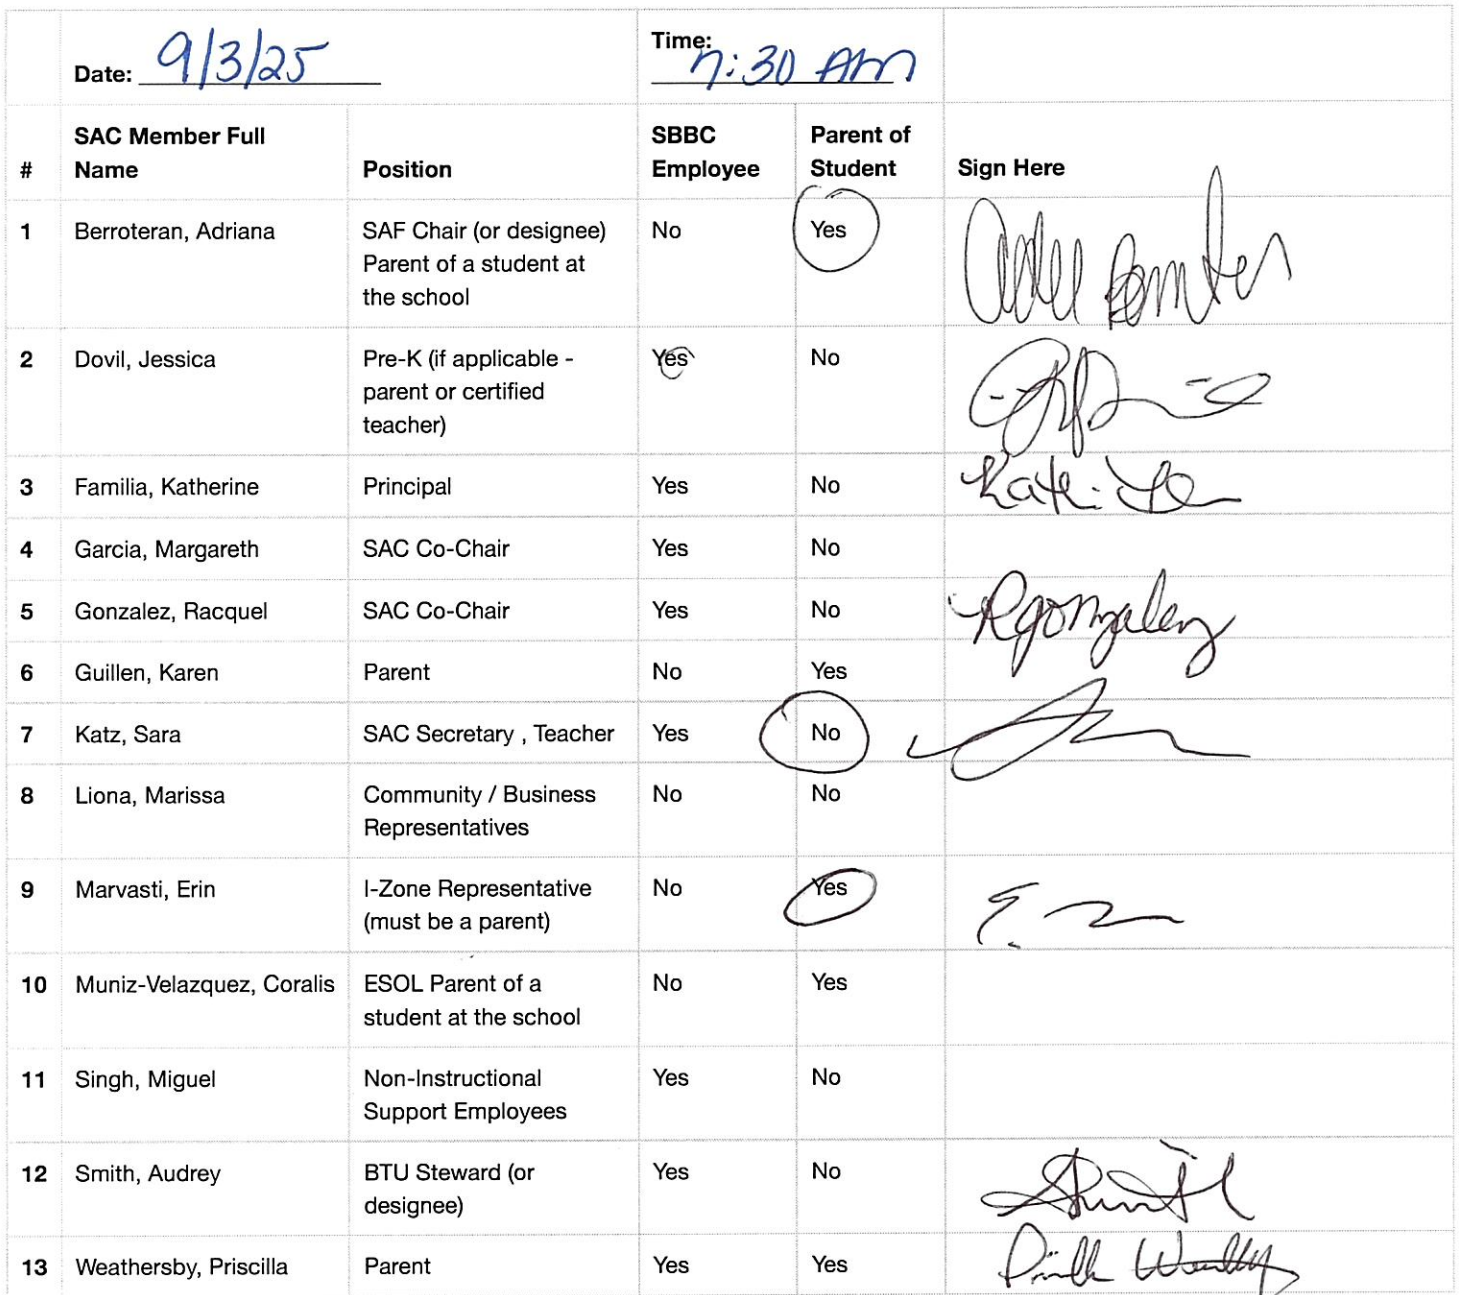 Date: 9/3/25 Time: 7:30 AM
# SAC Member Full Name Position SBBC Employee Parent of Student Sign Here
1 Berroteran, Adriana SAF Chair (or designee) No Yes
Parent of a student at
the school
2 Dovil, Jessica Pre-K (if applicable - Yes No
parent or certified
teacher)
3 Familia, Katherine Principal Yes No
4 Garcia, Margareth SAC Co-Chair Yes No
5 Gonzalez, Racquel SAC Co-Chair Yes No RGonzalez
6 Guillen, Karen Parent No Yes
7 Katz, Sara SAC Secretary , Teacher Yes No
8 Liona, Marissa Community / Business No No
Representatives
9 Marvasti, Erin I-Zone Representative No Yes
(must be a parent)
10 Muniz-Velazquez, Coralis ESOL Parent of a No Yes
student at the school
11 Singh, Miguel Non-Instructional Yes No
Support Employees
12 Smith, Audrey BTU Steward (or Yes No
designee)
13 Weathersby, Priscilla Parent Yes Yes